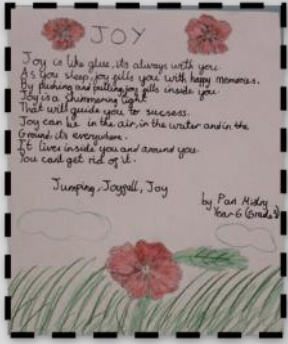 JOY
Joy is like glue, it's always with you.
As you sleep, joy fills you with happy memories.
By pushing and pulling joy fills inside you.
Joy is a shimmering light
That will guide you to success.
Joy can be in the air, in the water and in the
Ground it's everywhere.
It lives inside you and around you.
You cant get rid of it.
Jumping, Joyfull, Joy
by Pari Mistry
Year-6 (Grade